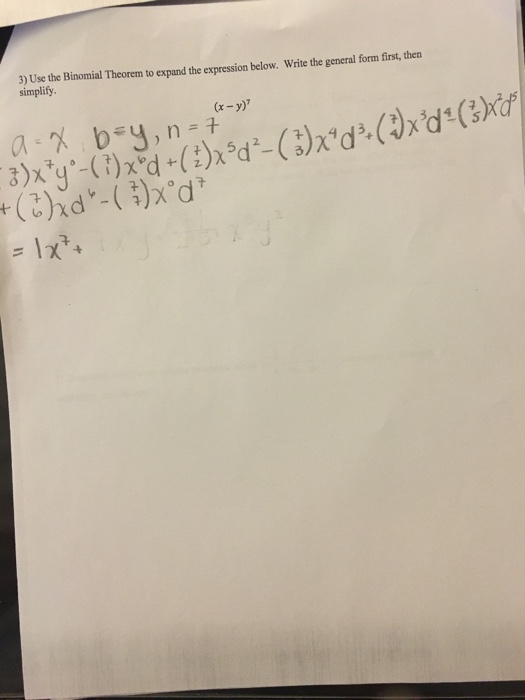 3) Use the Binomial Theorem to expand the expression below. Write the general form first, then
simplify.
(x – y)⁷
a = x, b = y, n = 7
(7 0)x⁷y⁰ - (7 1)x⁶d + (7 2)x⁵d² - (7 3)x⁴d³ + (7 4)x³d⁴ - (7 5)x²d⁵
+ (7 6)xd⁶ - (7 7)x⁰d⁷
= 1x⁷ +